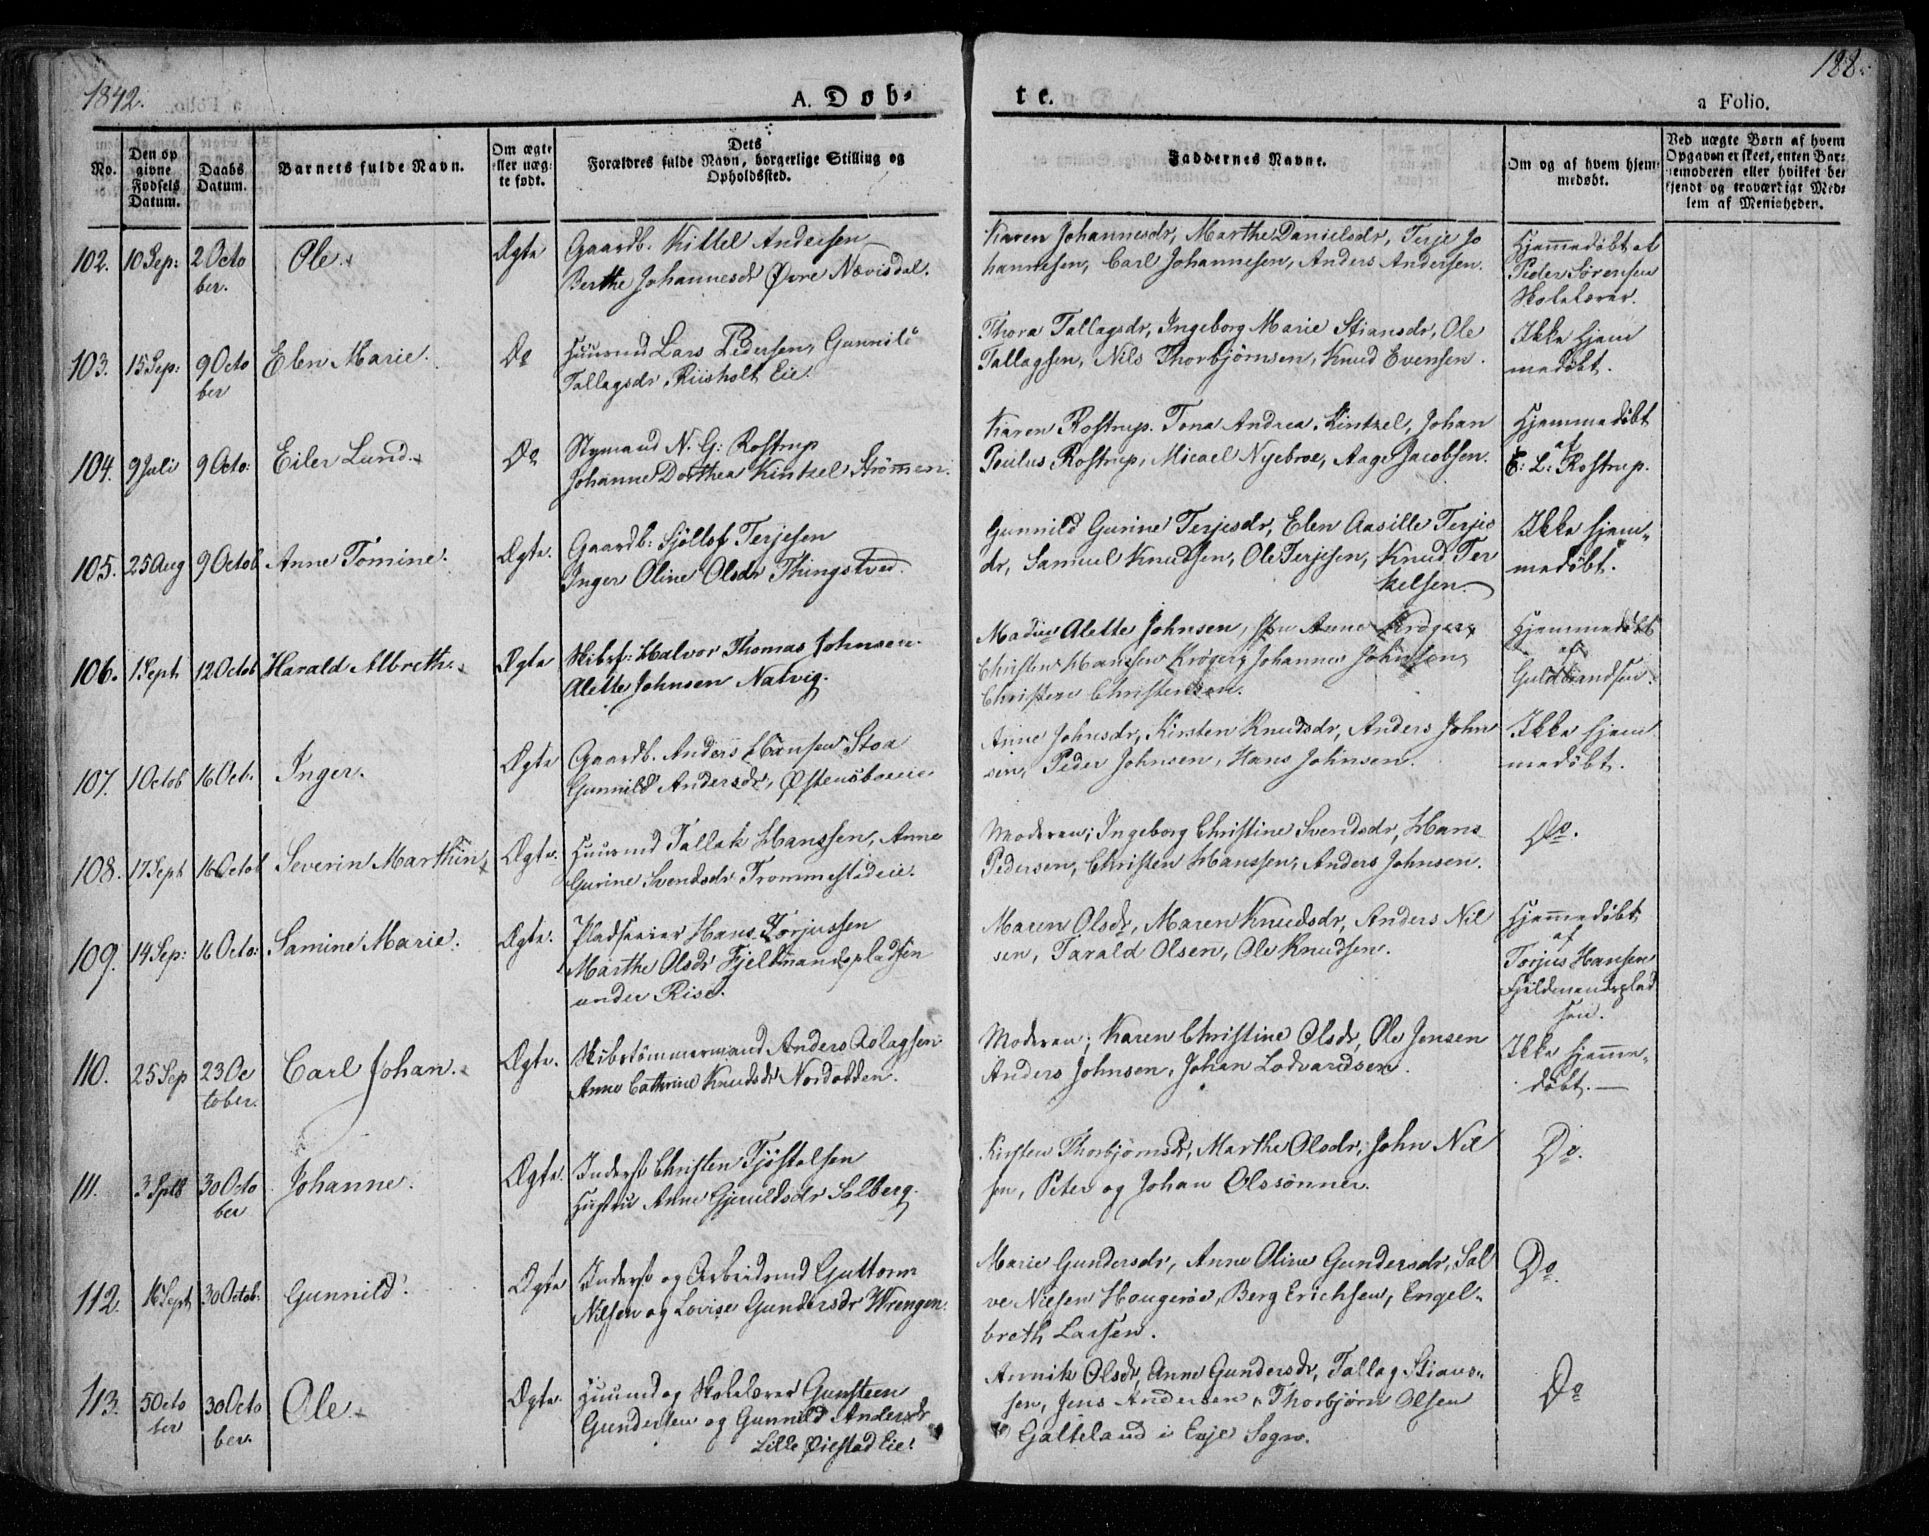 1842.
A. Døb-
te.
188.
a Folio.
No.
Den op
givne
Fødsels
Datum.
Daabs
Datum.
Barnets fulde Navn.
Om ægte
eller uæg-
te født.
Dets
Forældres fulde Navn, borgerlige Stilling og
Opholdssted.
Faddernes Navne.
Om og af hvem hjem-
medøbt.
Ved uægte Børn af hvem
Opgaven er skeet, enten Bar-
nemoderen eller hvilket be-
kjendt og troværdigt Med-
lem af Menigheden.
102.
10 Sep:
2 Octo
ber.
Ole.
Ægte
Gaardb. Kittel Andersen
Berthe Johannesdr Øvre Nævisdal.
Karen Johannesdr, Marthe Danielsdr, Terje Jo
hannesen, Carl Johannesen, Anders Andersen.
Hjemmedøbt af
Peder Sørensen
Skolelærer.
103.
15 Sep:
9 Octo
ber
Elen Marie.
Do
Huusmd Lars Pedersen, Gunnild
Tallagsdr Riisholt Eie.
Thora Tallagsdr, Ingeborg Marie Stiansdr, Ole
Tallagsen, Nils Thorbjørnsen, Knud Evensen.
Ikke hjem
medøbt.
104.
9 Juli
9 Octo:
Eiler Lund.
Do
Stymand N. G: Rostrup
Johanne Dorthea Kintzel Strømmen.
Karen Rostrup. Tona Andrea Kintzel, Johan
Poulus Rostrup, Micael Nyebroe, Aage Jacobsen.
Hjemmedøbt
af
E: L: Rostrup.
105.
25 Aug
9 Octob
Anne Tomine.
Ægte.
Gaardb: Sjøllof Terjesen
Inger Oline Olsdr Thingstved.
Gunnild Gurine Terjesdr, Elen Aasille Terjes
dr, Samuel Knudsen, Ole Terjesen, Knud Ter
kelsen.
Ikke hjem-
medøbt.
106.
1 Sept
12 Octob
Harald Albreth.
Ægte
Skibsf: Halvor Thomas Johnsen.
Alette Johnsen Natvig.
Madm Alette Johnsen, Anne Krøger,
Christen Hanssen Krøger, Johannes Johnsen,
Christen Christensen.
Hjemmedøbt
af
Guldbrandsen.
107.
1 Octob
16 Oct.
Inger.
Ægte
Gaardb. Anders Hansen Stoa
Gunnild Andersdr, Østensboeie
Anne Johnsdr, Kirsten Knudsdr, Anders John
sen, Peder Johnsen, Hans Johnsen.
Ikke hjem
medøbt.
108.
17 Sept
16 Octob
Severin Marthin
Ægte.
Huusmd Tallak Hanssen, Anne
Gurine Svendsdr Trommestadeie.
Moderen; Ingeborg Christine Svendsdr, Hans
Pedersen, Christen Hanssen, Anders Johnsen.
Do.
109.
14 Sep:
16 Octo:
Samine Marie.
Ægte.
Pladseeier Hans Torjussen
Marthe Olsdr Fjeldmandspladsen
under Rise.
Maren Olsdr, Maren Knudsdr, Anders Nil
sen, Tarald Olsen, Ole Knudsen.
Hjemmedøbt
af
Torjus Hansen
Fjeldmandsplad
sen.
110.
25 Sep
23 Oc
tober.
Carl Johan.
Ægte.
Skibstømmermand Anders Aslagsen
Anne Cathrine Knudsdr Nordodden.
Moderen; Karen Christine Olsdr, Ole Jensen
Anders Johnsen, Johan Lodvardsen.
Ikke hjemme-
døbt.
111.
3 Sptb
30 Octo
ber
Johanne.
Ægte.
Inderst Christen Tjøstolsen
Hustru Anne Gjeruldsdr Solberg.
Kirsten Thorbjørnsdr, Marthe Olsdr, John Nil
sen, Peter og Johan Olssønner.
Do.
112.
16 Sept
30 Octob.
Gunnild.
Ægte
Inderst og Arbeidsmd Guttorm
Nilsen og Lovise Gundersdr Wrengen.
Marie Gundersdr, Anne Oline Gundersdr, Sal
ve Nielsen Haugerøe, Berg Erichsen, Engel-
breth Larsen.
Do.
113.
5 Octo
ber
30 Octo
ber.
Ole
Ægte.
Huusmd og Skolelærer Gunsteen
Gundersen og Gunnild Andersdr
Lille Øiestad Eie.
Annik Olsdr, Anne Gundersdr, Tallag Stians-
sen, Jens Andersen, Thorbjørn Olsen
Galteland i Evje Sogn.
Do